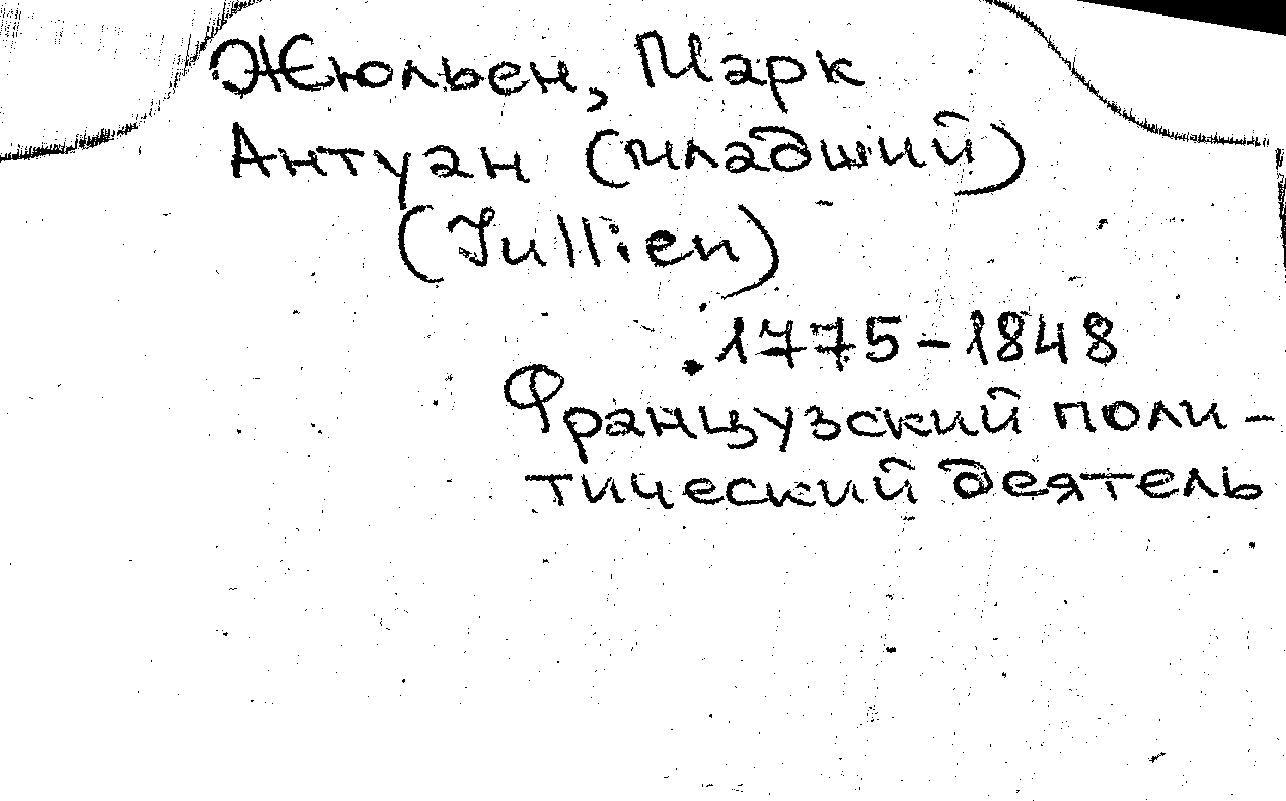 Жюльен, Марк
Антуан (младший)
(Jullien)
.1775-1848
Французский поли-
тический деятель